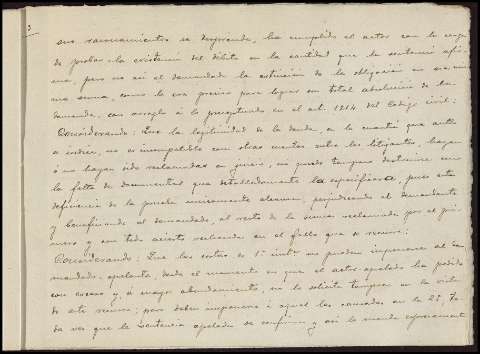 sus razonamientos se desprende, ha cumplido el actor con la carga
de probar la existencia del débito en la cantidad que la sentencia afir-
ma, pero no así el demandado la extinción de la obligación en esa mis-
ma suma, como le era preciso para lograr su total absolución de la
demanda, con arreglo á lo preceptuado en el art. 1214 del Código civil:
Considerando: Que la legitimidad de la deuda, en la cuantía que antes
se indica, no es incompatible con otras cuentas entre los litigantes, hayan
ó no hayan sido reclamadas en juicio, ni puede tampoco destruirse con
la falta de documentos que detalladamente la especificara, pues esta
deficiencia de la prueba únicamente alcanza, perjudicando al demandante
y beneficiando al demandado, al resto de la suma reclamada por el pri-
mero y con todo acierto rechazada en el fallo que se recurre:
Considerando: Que las costas de 1ª instª no pueden imponerse al de-
mandado, apelante, desde el momento en que el actor apelado ha pedido
con exceso y, á mayor abundamiento, no lo solicita tampoco en la vista
de este recurso; pero deben imponerse á aquel las causadas en la 2ª, to-
da vez que la sentencia apelada se confirma y así lo manda expresament